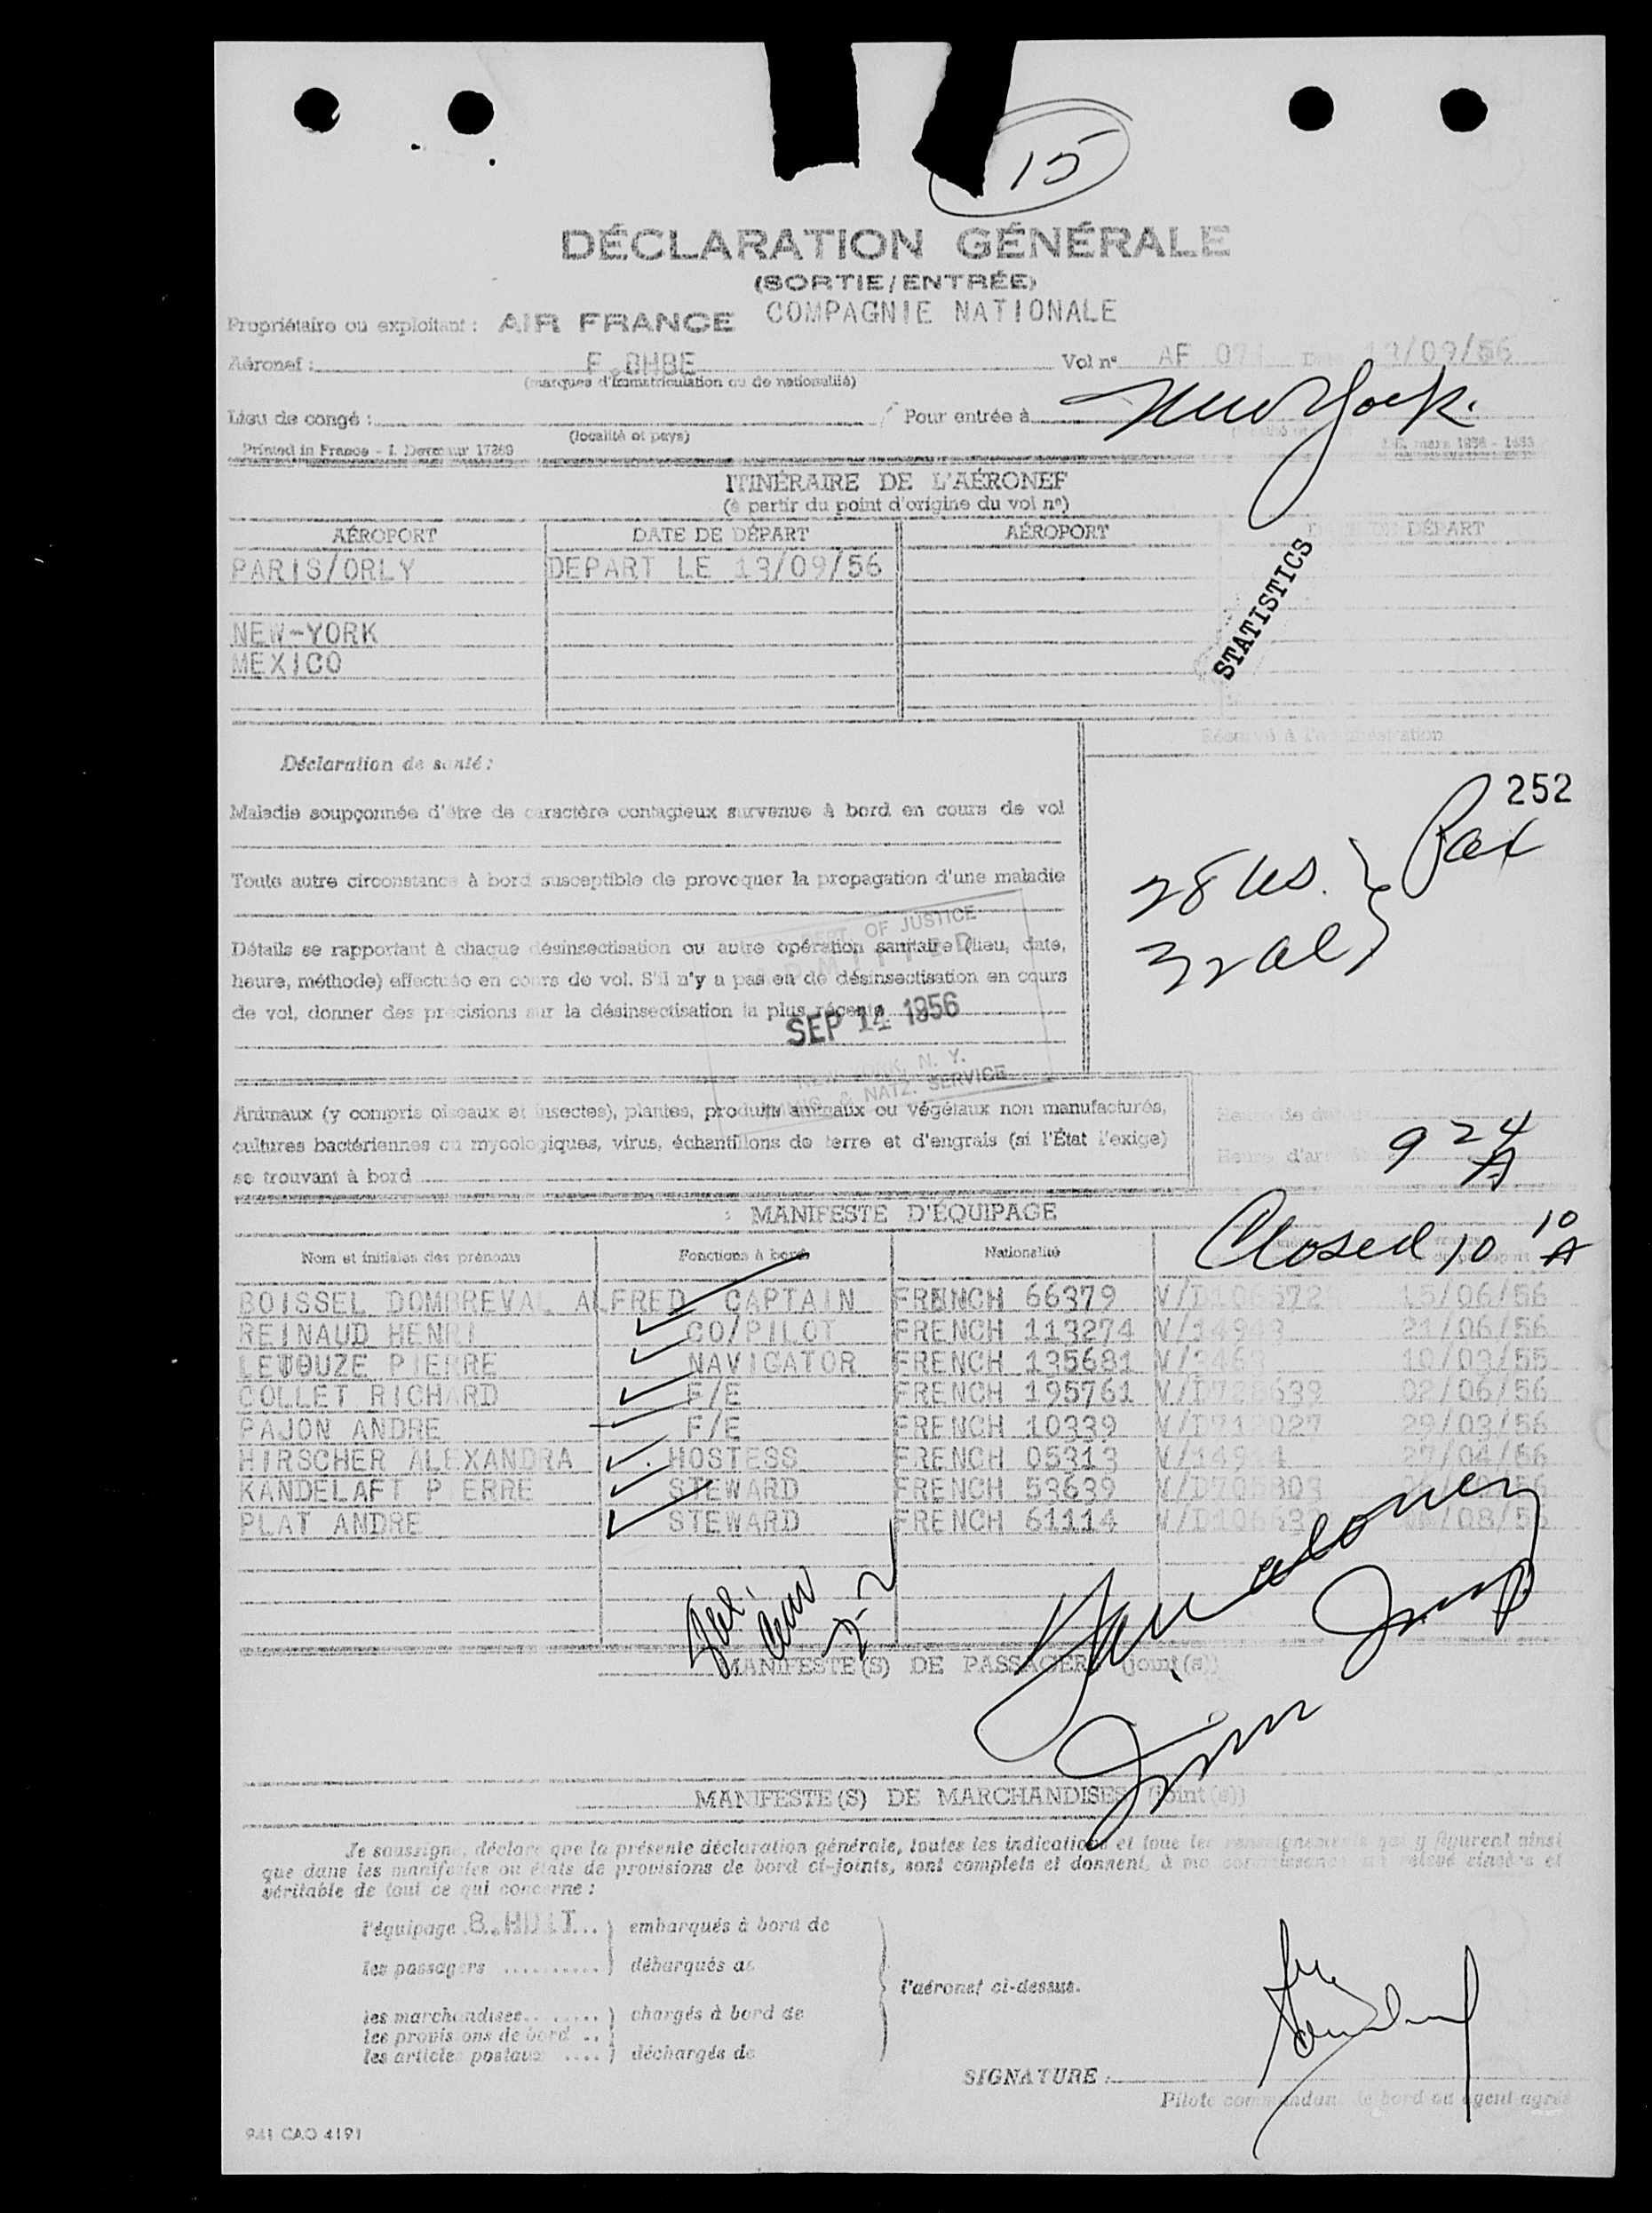 15
DÉCLARATION GÉNÉRALE
(SORTIE/ENTRÉE)
Propriétaire ou exploitant : AIR FRANCE COMPAGNIE NATIONALE
Aéronef : F.BHBE Vol n° AF 13/09/56
(marques d'immatriculation ou de nationalité)
Lieu de congé : Pour entrée à New York.
(localité et pays)
Printed in France
ITINÉRAIRE DE L'AÉRONEF
(à partir du point d'origine du vol n°)
AÉROPORT DATE DE DÉPART AÉROPORT DÉPART
PARIS/ORLY DEPART LE 13/09/56
STATISTICS
NEW-YORK
MEXICO
Réservé à l'administration
Déclaration de santé :
252
Maladie soupçonnée d'être de caractère contagieux survenue à bord en cours de vol
Pax
28 US.
Toute autre circonstance à bord susceptible de provoquer la propagation d'une maladie
32 al
DEPT. OF JUSTICE
Détails se rapportant à chaque désinsectisation ou autre opération sanitaire (lieu, date,
heure, méthode) effectuée en cours de vol. S'il n'y a pas eu de désinsectisation en cours
de vol, donner des précisions sur la désinsectisation la plus récente
SEP 14 1956
NEW YORK, N. Y.
IMMIG. & NATZ. SERVICE
Animaux (y compris oiseaux et insectes), plantes, produits animaux ou végétaux non manufacturés,
cultures bactériennes ou mycologiques, virus, échantillons de terre et d'engrais (si l'État l'exige)
se trouvant à bord
Heure d'arrivée 9 24 A
MANIFESTE D'ÉQUIPAGE
Closed 10 10 A
Nom et initiales des prénoms Fonctions à bord Nationalité
BOISSEL DOMBREVAL ALFRED CAPTAIN FRENCH 66379 15/06/56
REINAUD HENRI CO/PILOT FRENCH 113274 21/06/56
LETOUZE PIERRE NAVIGATOR FRENCH 135681 10/03/55
COLLET RICHARD F/E FRENCH 195761 02/06/56
PAJON ANDRE F/E FRENCH 10339 29/03/56
HIRSCHER ALEXANDRA HOSTESS FRENCH 05313 27/04/56
KANDELAFT PIERRE STEWARD FRENCH 53639
PLAT ANDRE STEWARD FRENCH 61114
MANIFESTE(S) DE PASSAGERS (joint(s))
MANIFESTE(S) DE MARCHANDISES (joint(s))
Je soussigné, déclare que la présente déclaration générale, toutes les indications et tous les renseignements qui y figurent ainsi
que dans les manifestes ou états de provisions de bord ci-joints, sont complets et donnent, à ma connaissance un relevé sincère et
véritable de tout ce qui concerne :
l'équipage 8.HUIT embarqués à bord de
les passagers débarqués de
l'aéronef ci-dessus.
les marchandises chargés à bord de
les provisions de bord
les articles postaux déchargés de
SIGNATURE :
Pilote commandant de bord ou agent agréé
941 CAO 4191